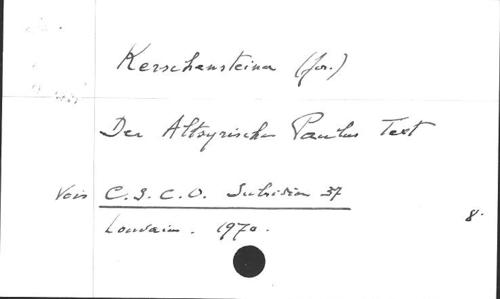 Kerschensteiner (Jos.)
Der Altsyrische Paulus Text
Vois C.S.C.O. Subsidia 37
Louvain. 1970.
8.